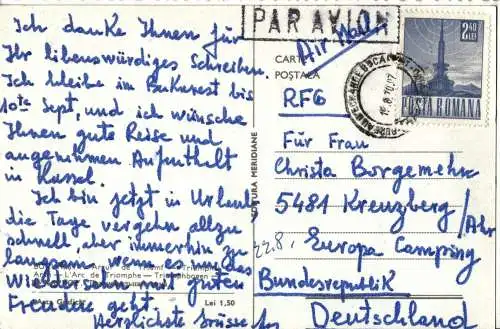 Ich danke Ihnen für
Ihr liebenswürdiges Schreiben.
Ich bleibe im Bukarest bis
10te Sept, und ich wünsche
Ihnen gute Reise und
angenehmen Aufenthalt
in Kassel.
Ich bin jetzt in Urlaub
die Tage vergehen allzu
schnell, aber immerhin zu
langsam wenn es um das
Wiedersehen mit guten
Freunden geht.
Herzlichste Grüsse
Arcul de Triumf
Arch — L'Arc de Triomphe — Triumphbogen
Lei 1,50
EDITURA MERIDIANE
PAR AVION
Air Mail
CARTE
POSTALA
RFG
2,40
LEI
POSTA ROMANA
Für Frau
Christa Borgemehr
5481 Kreuzberg/Ahr
22.8.
Europa Camping
Bundesrepublik
Deutschland